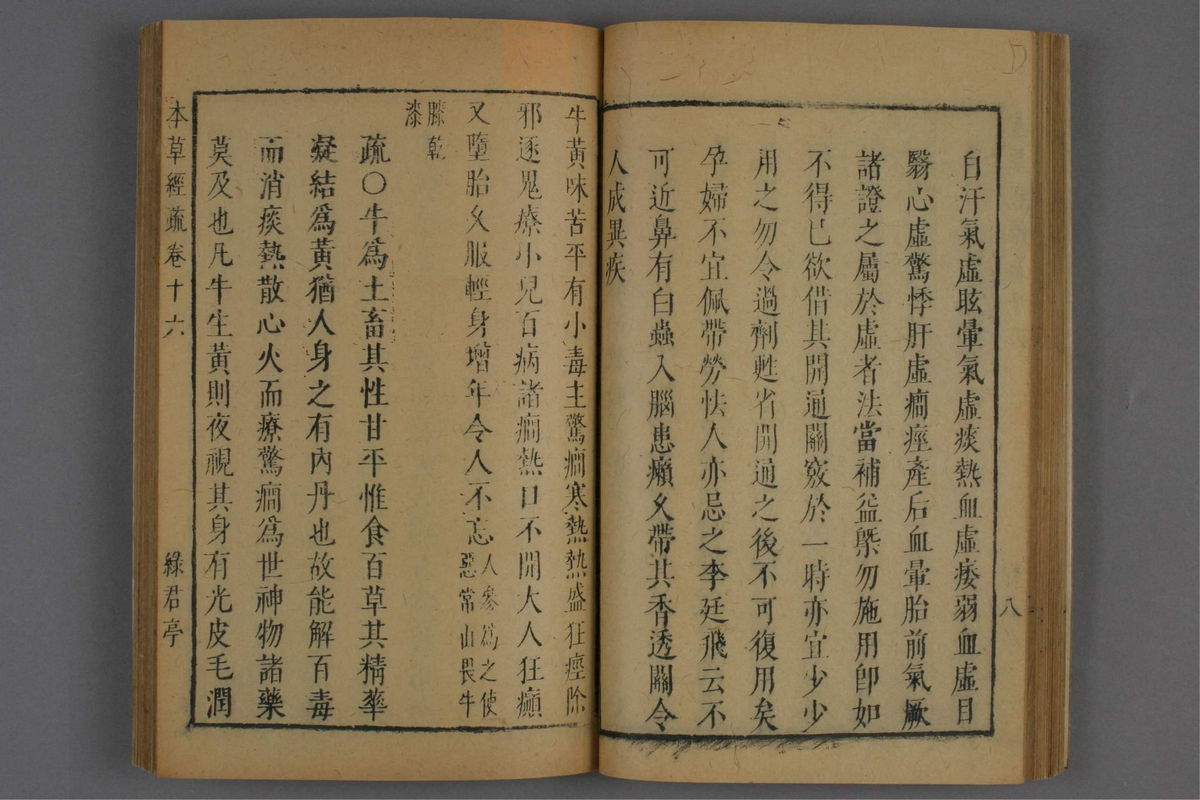 自汗氣虛眩暈氣虛痰熱血虛痿弱血虛目
翳心虛驚悸肝虛癎痙產后血暈胎前氣厥
諸證之屬於虛者法當補益槩勿施用卽如
不得已欲借其開通關竅於一時亦宜少少
用之勿令過劑甦省開通之後不可復用矣
孕婦不宜佩帶勞怯人亦忌之李廷飛云不
可近鼻有白蟲入腦患癩久帶其香透關令
人成異疾
八
牛黃味苦平有小毒主驚癎寒熱熱盛狂痙除
邪逐鬼療小兒百病諸癎熱口不開大人狂癲
又墮胎久服輕身增年令人不忘人參爲之使
惡常山畏牛
膝乾
漆
疏○牛爲土畜其性甘平惟食百草其精華
凝結爲黃猶人身之有內丹也故能解百毒
而消痰熱散心火而療驚癎爲世神物諸藥
莫及也凡牛生黃則夜視其身有光皮毛潤
本草經疏卷十六
綠君亭